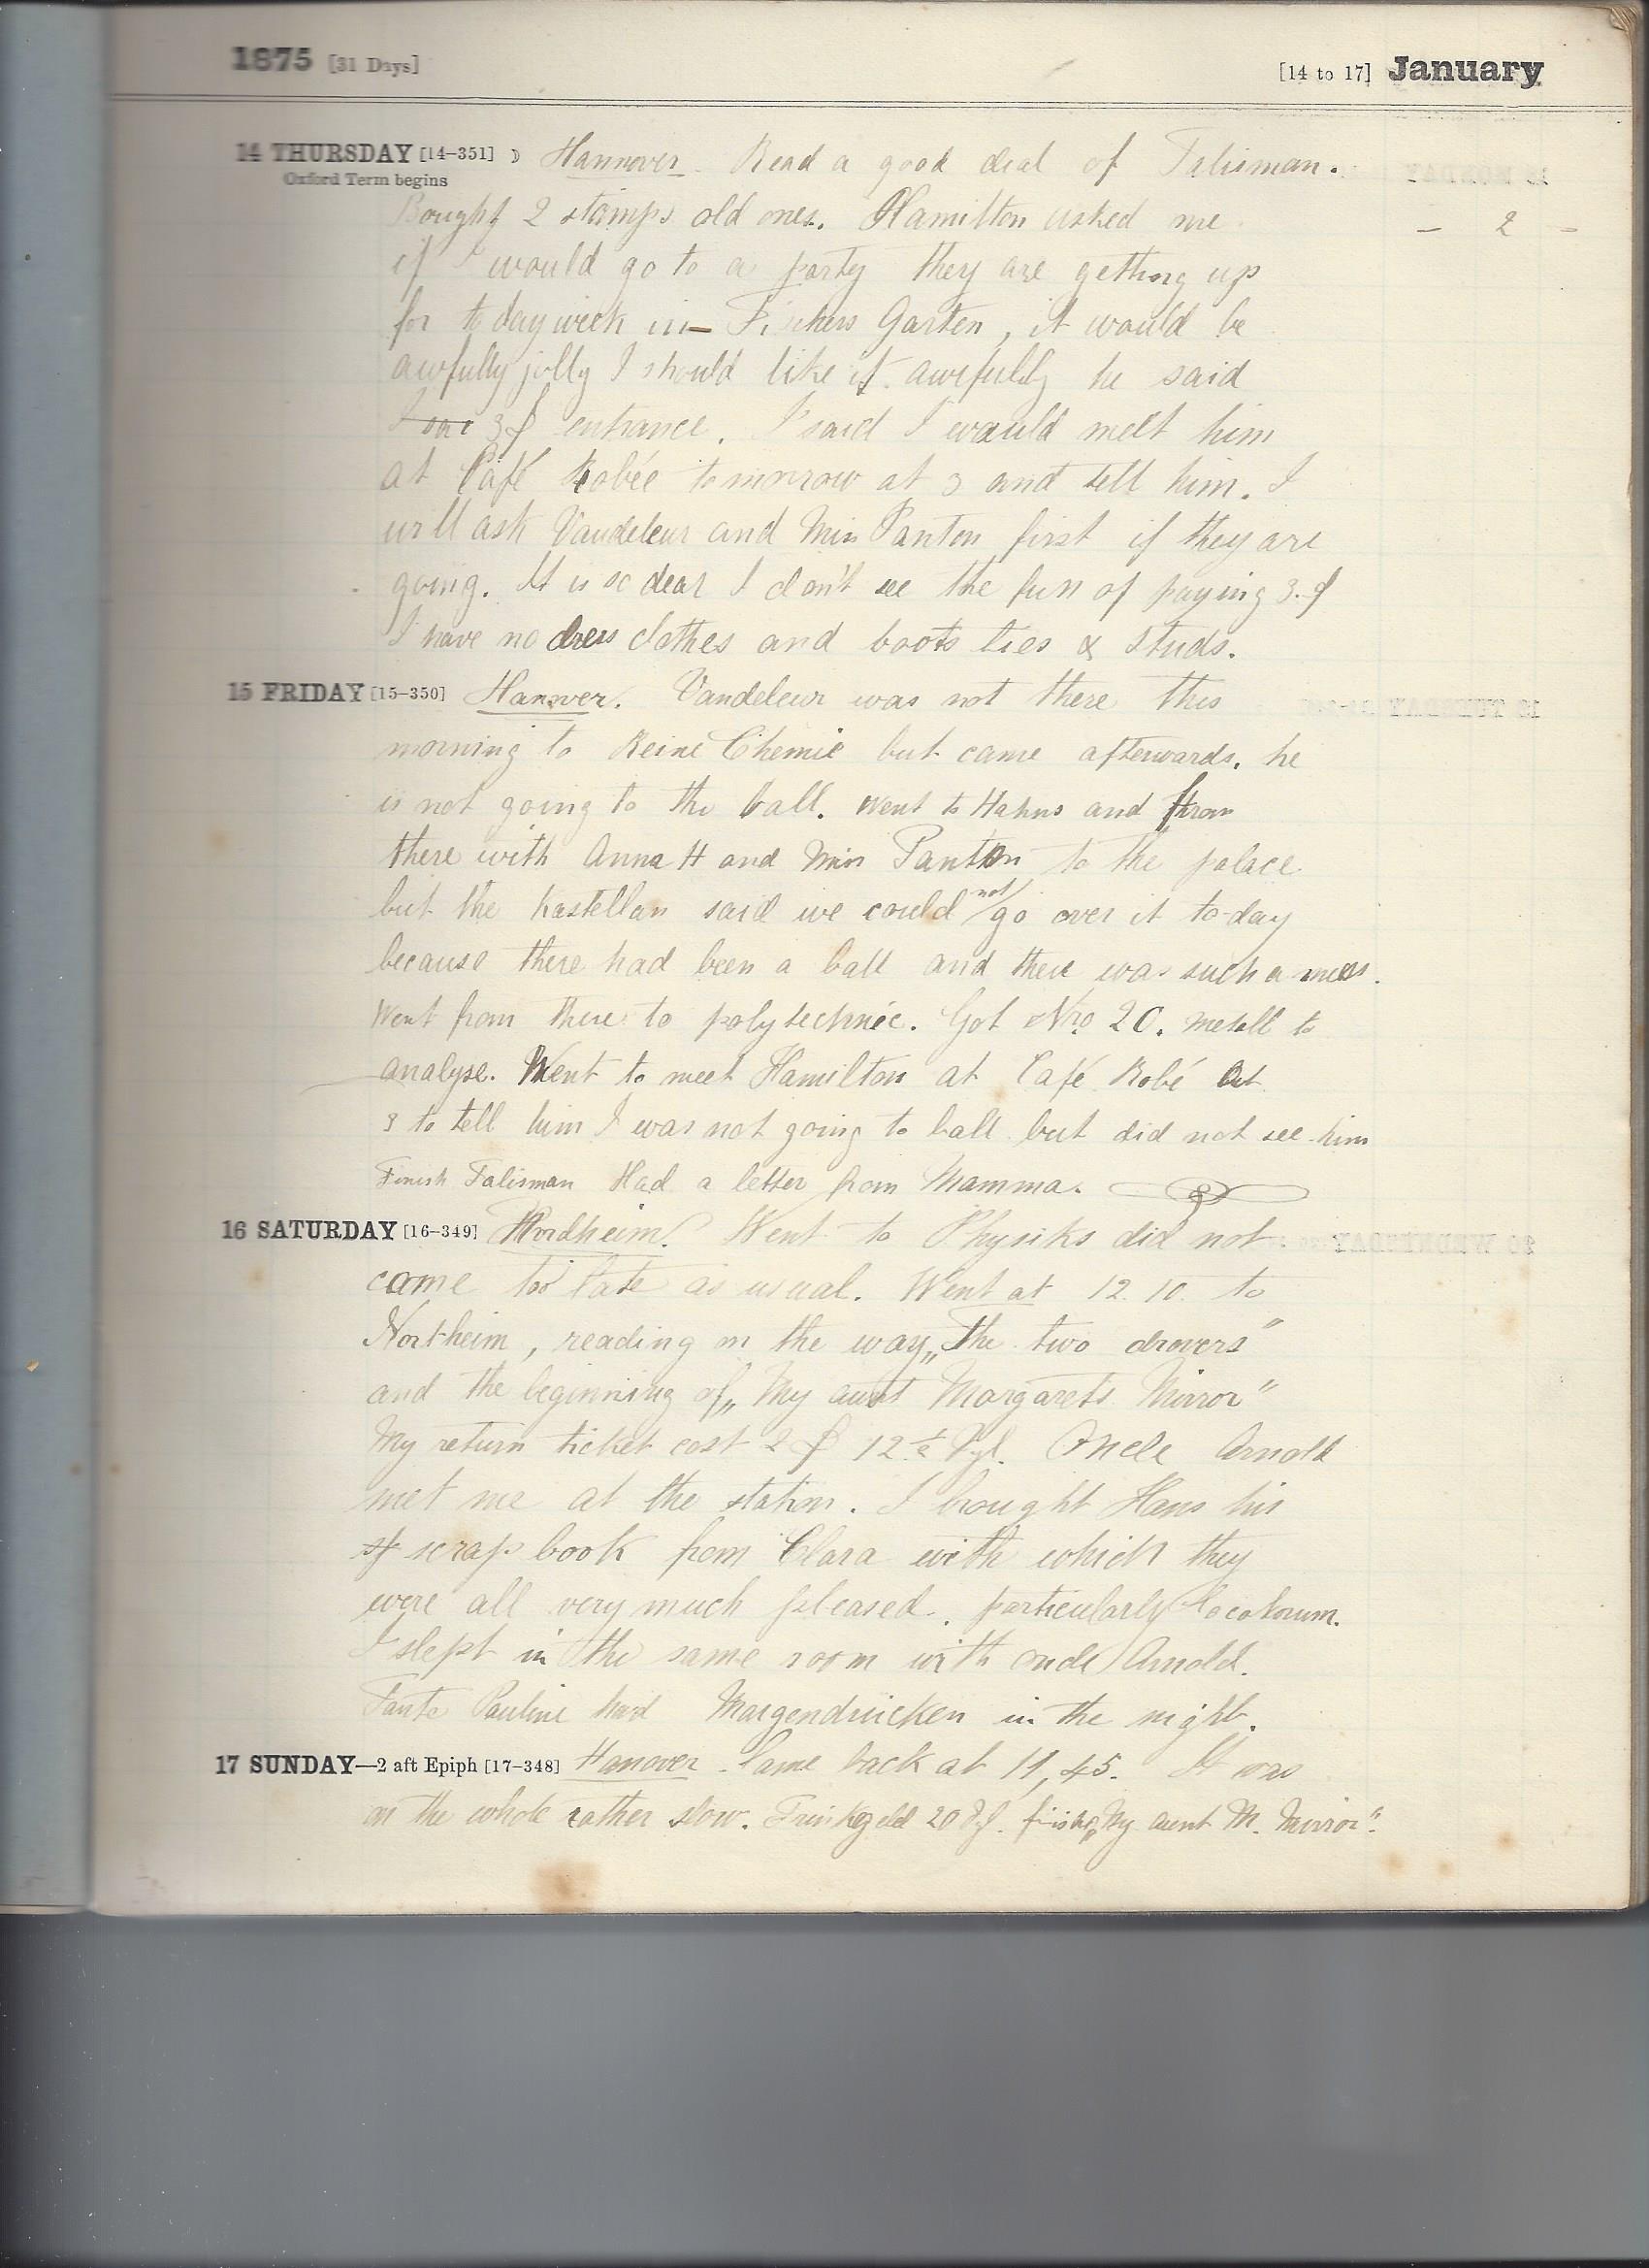 1875 [31 Days] [14 to 17] January
14 THURSDAY [14-351] ☽ Hannover. Read a good deal of Talisman.
Oxford Term begins
Bought 2 stamps old ones. Hamilton asked me – 2 –
if I would go to a party they are getting up
for to day week in Garten, it would be
awfully jolly I should like it awfully he said
3 entrance. I said I would meet him
at Café Robée tomorrow at 3 and tell him. I
will ask Vandeleur and Miss Panton first if they are
going. It is so dear I don't see the fun of paying 3.
I have no dress clothes and boots ties & studs.
15 FRIDAY [15-350] Hanover. Vandeleur was not there this
morning to Reine Chemie but came afterwards. he
is not going to the ball. Went to Hahns and from
there with Anna H and Miss Panton to the palace
but the Kastellan said we could not go over it to-day
because there had been a ball and there was such a mess.
Went from there to polytechnic. Got Nro 20. metall to
analyse. Went to meet Hamilton at Café Robé at
3 to tell him I was not going to ball but did not see him
Finish Talisman Had a letter from Mamma.
16 SATURDAY [16-349] Nordheim. Went to Physiks did not
come too late as usual. Went at 12.10. to
Northeim, reading on the way „The two drovers"
and the beginning of „My aunt Margarets Mirror"
My return ticket cost 2 12½ Uncle Arnold
met me at the station. I brought Hans his
scrap book from Clara with which they
were all very much pleased. particularly
I slept in the same room with oncle Arnold.
Tante Pauline had Magendrücken in the night.
17 SUNDAY—2 aft Epiph [17-348] Hanover. Came back at 11,45. It was
on the whole rather slow. Trinkgeld 20 Pf. finish „My aunt M. Mirror".